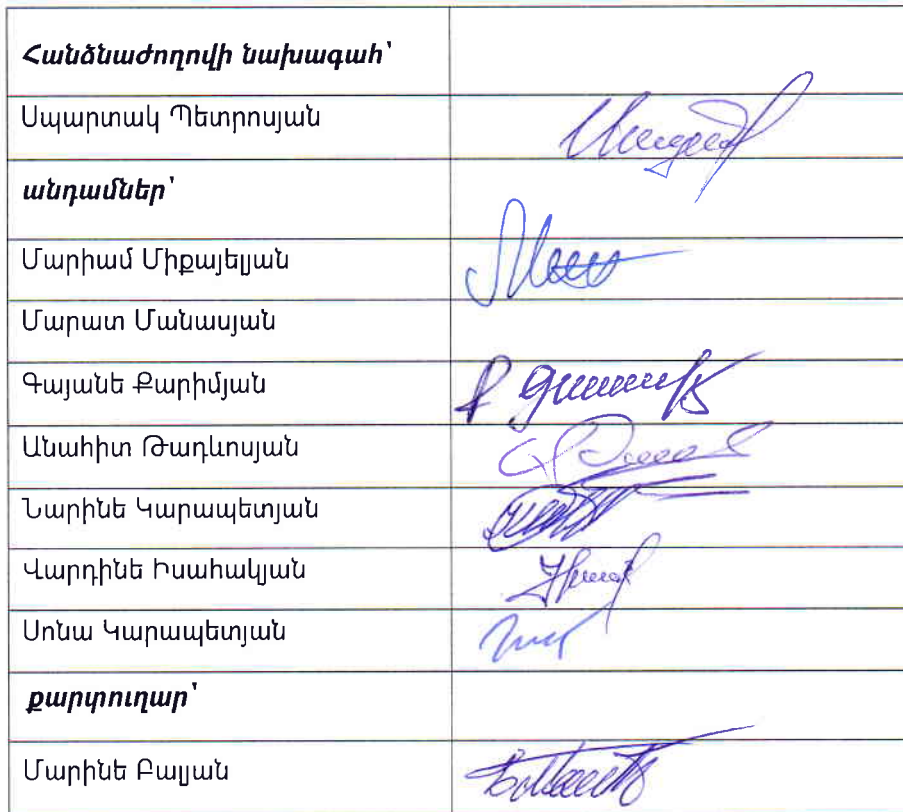 Հանձնաժողովի նախագահ՝
Սպարտակ Պետրոսյան
անդամներ՝
Մարիամ Միքայելյան
Մարատ Մանասյան
Գայանե Քարիմյան
Անահիտ Թադևոսյան
Նարինե Կարապետյան
Վարդինե Իսահակյան
Սոնա Կարապետյան
քարտուղար՝
Մարինե Բալյան